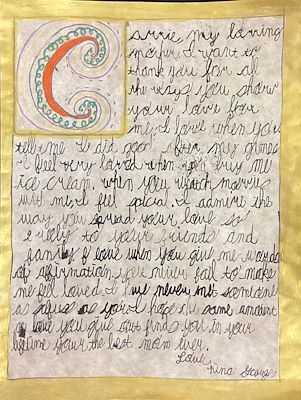 Carrie, my loving
mother, I want to
thank you for all
the ways you show
your love for
me. I love when you
tell me I did good after my games
I feel very loved when you buy me
ice cream. when you watch movies
with me, I feel special. I admire the
way you spread your love so
to your friends and
family. I love when you give me words
of affirmation, you never fail to make
me feel loved. I have never met someone
as as you. I hope the same amount
of love you give out finds you in your
lifetime your the best mom ever.
Love,
Nina